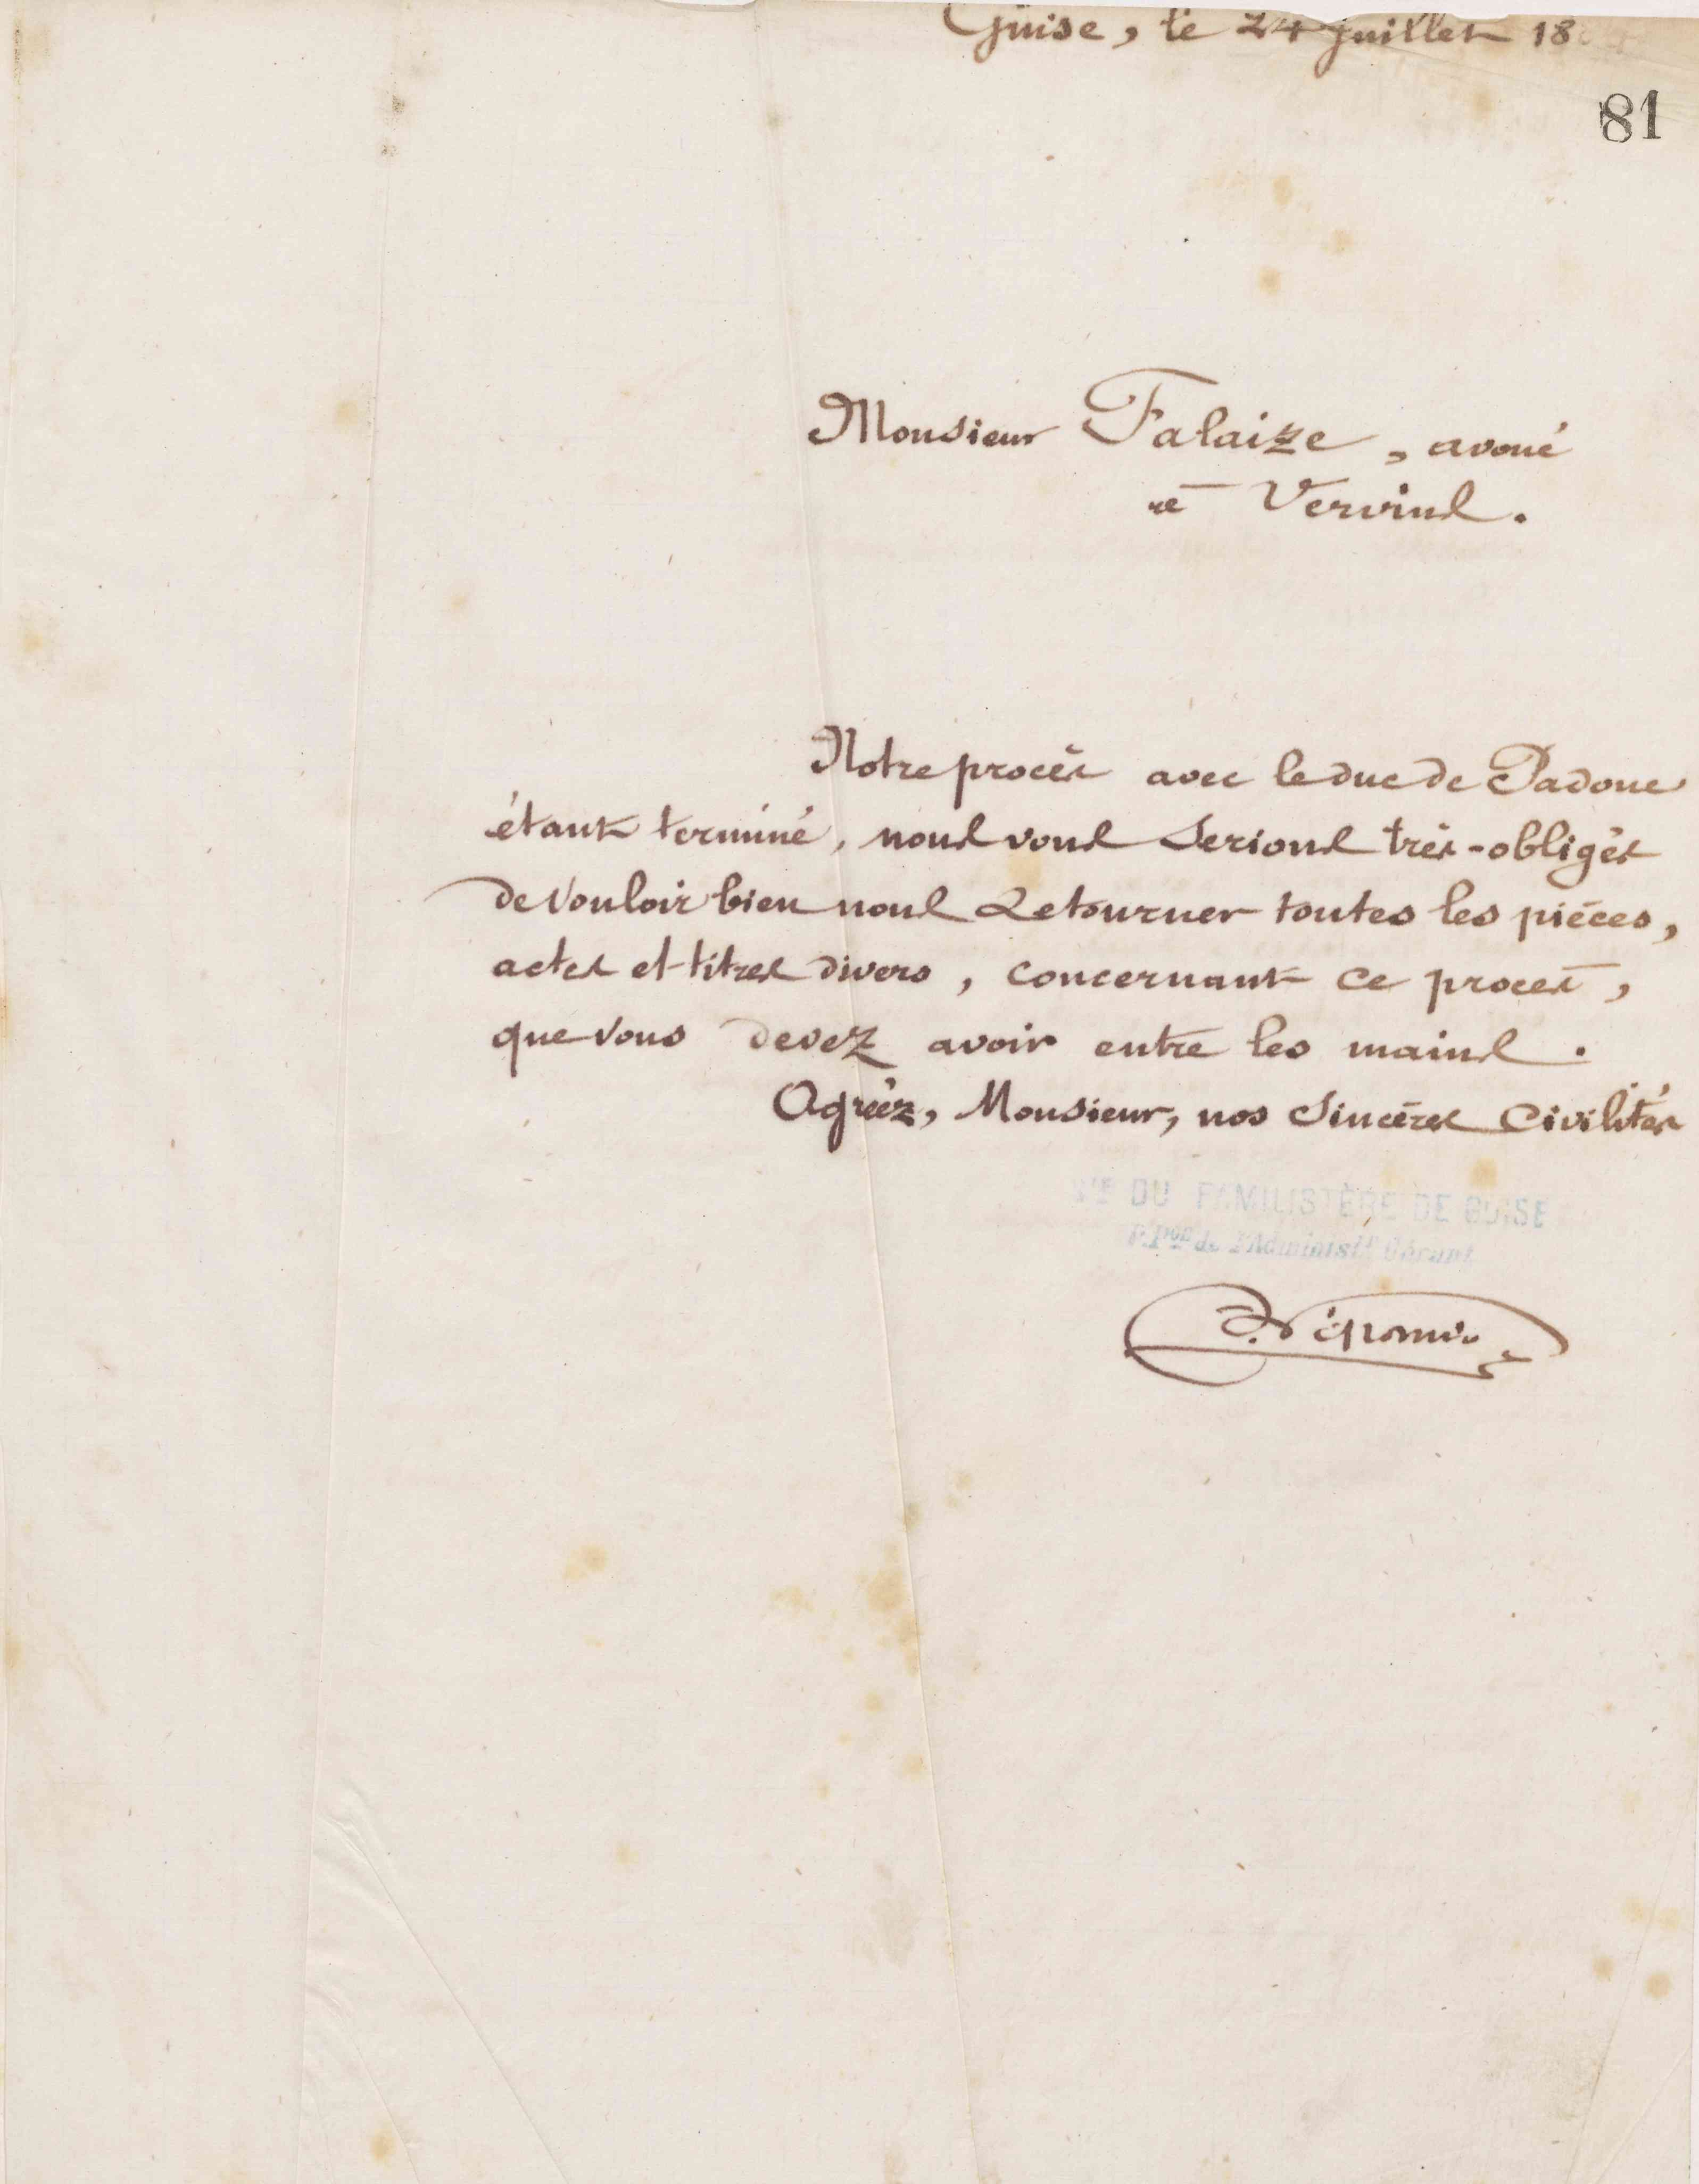 Guise, le 24 juillet 18
81
Monsieur Falaize, avoué
à Vervins.
Notre procès avec le duc de Padoue
étant terminé, nous vous serions très-obligés
de vouloir bien nous retourner toutes les pièces,
actes et titres divers, concernant ce procès,
que vous devez avoir entre les mains.
Agréez, Monsieur, nos sincères civilités
Sté DU FAMILISTÈRE DE GUISE
P. Pon de l'Administr Gérant